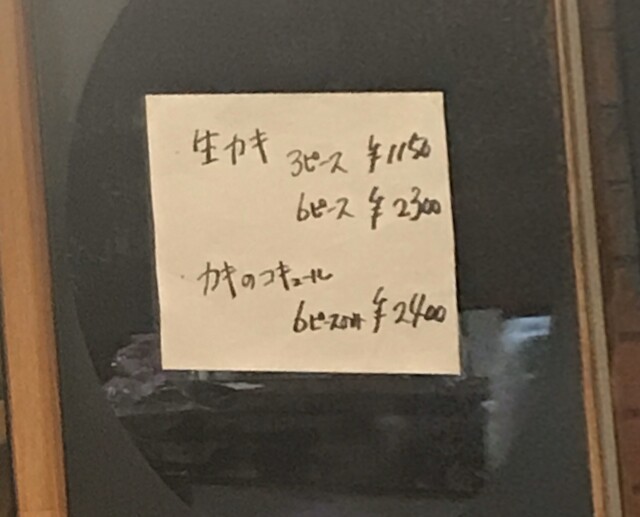 生カキ 3ピース ¥1150
6ピース ¥2300
カキのコキュール
6ピース ¥2400